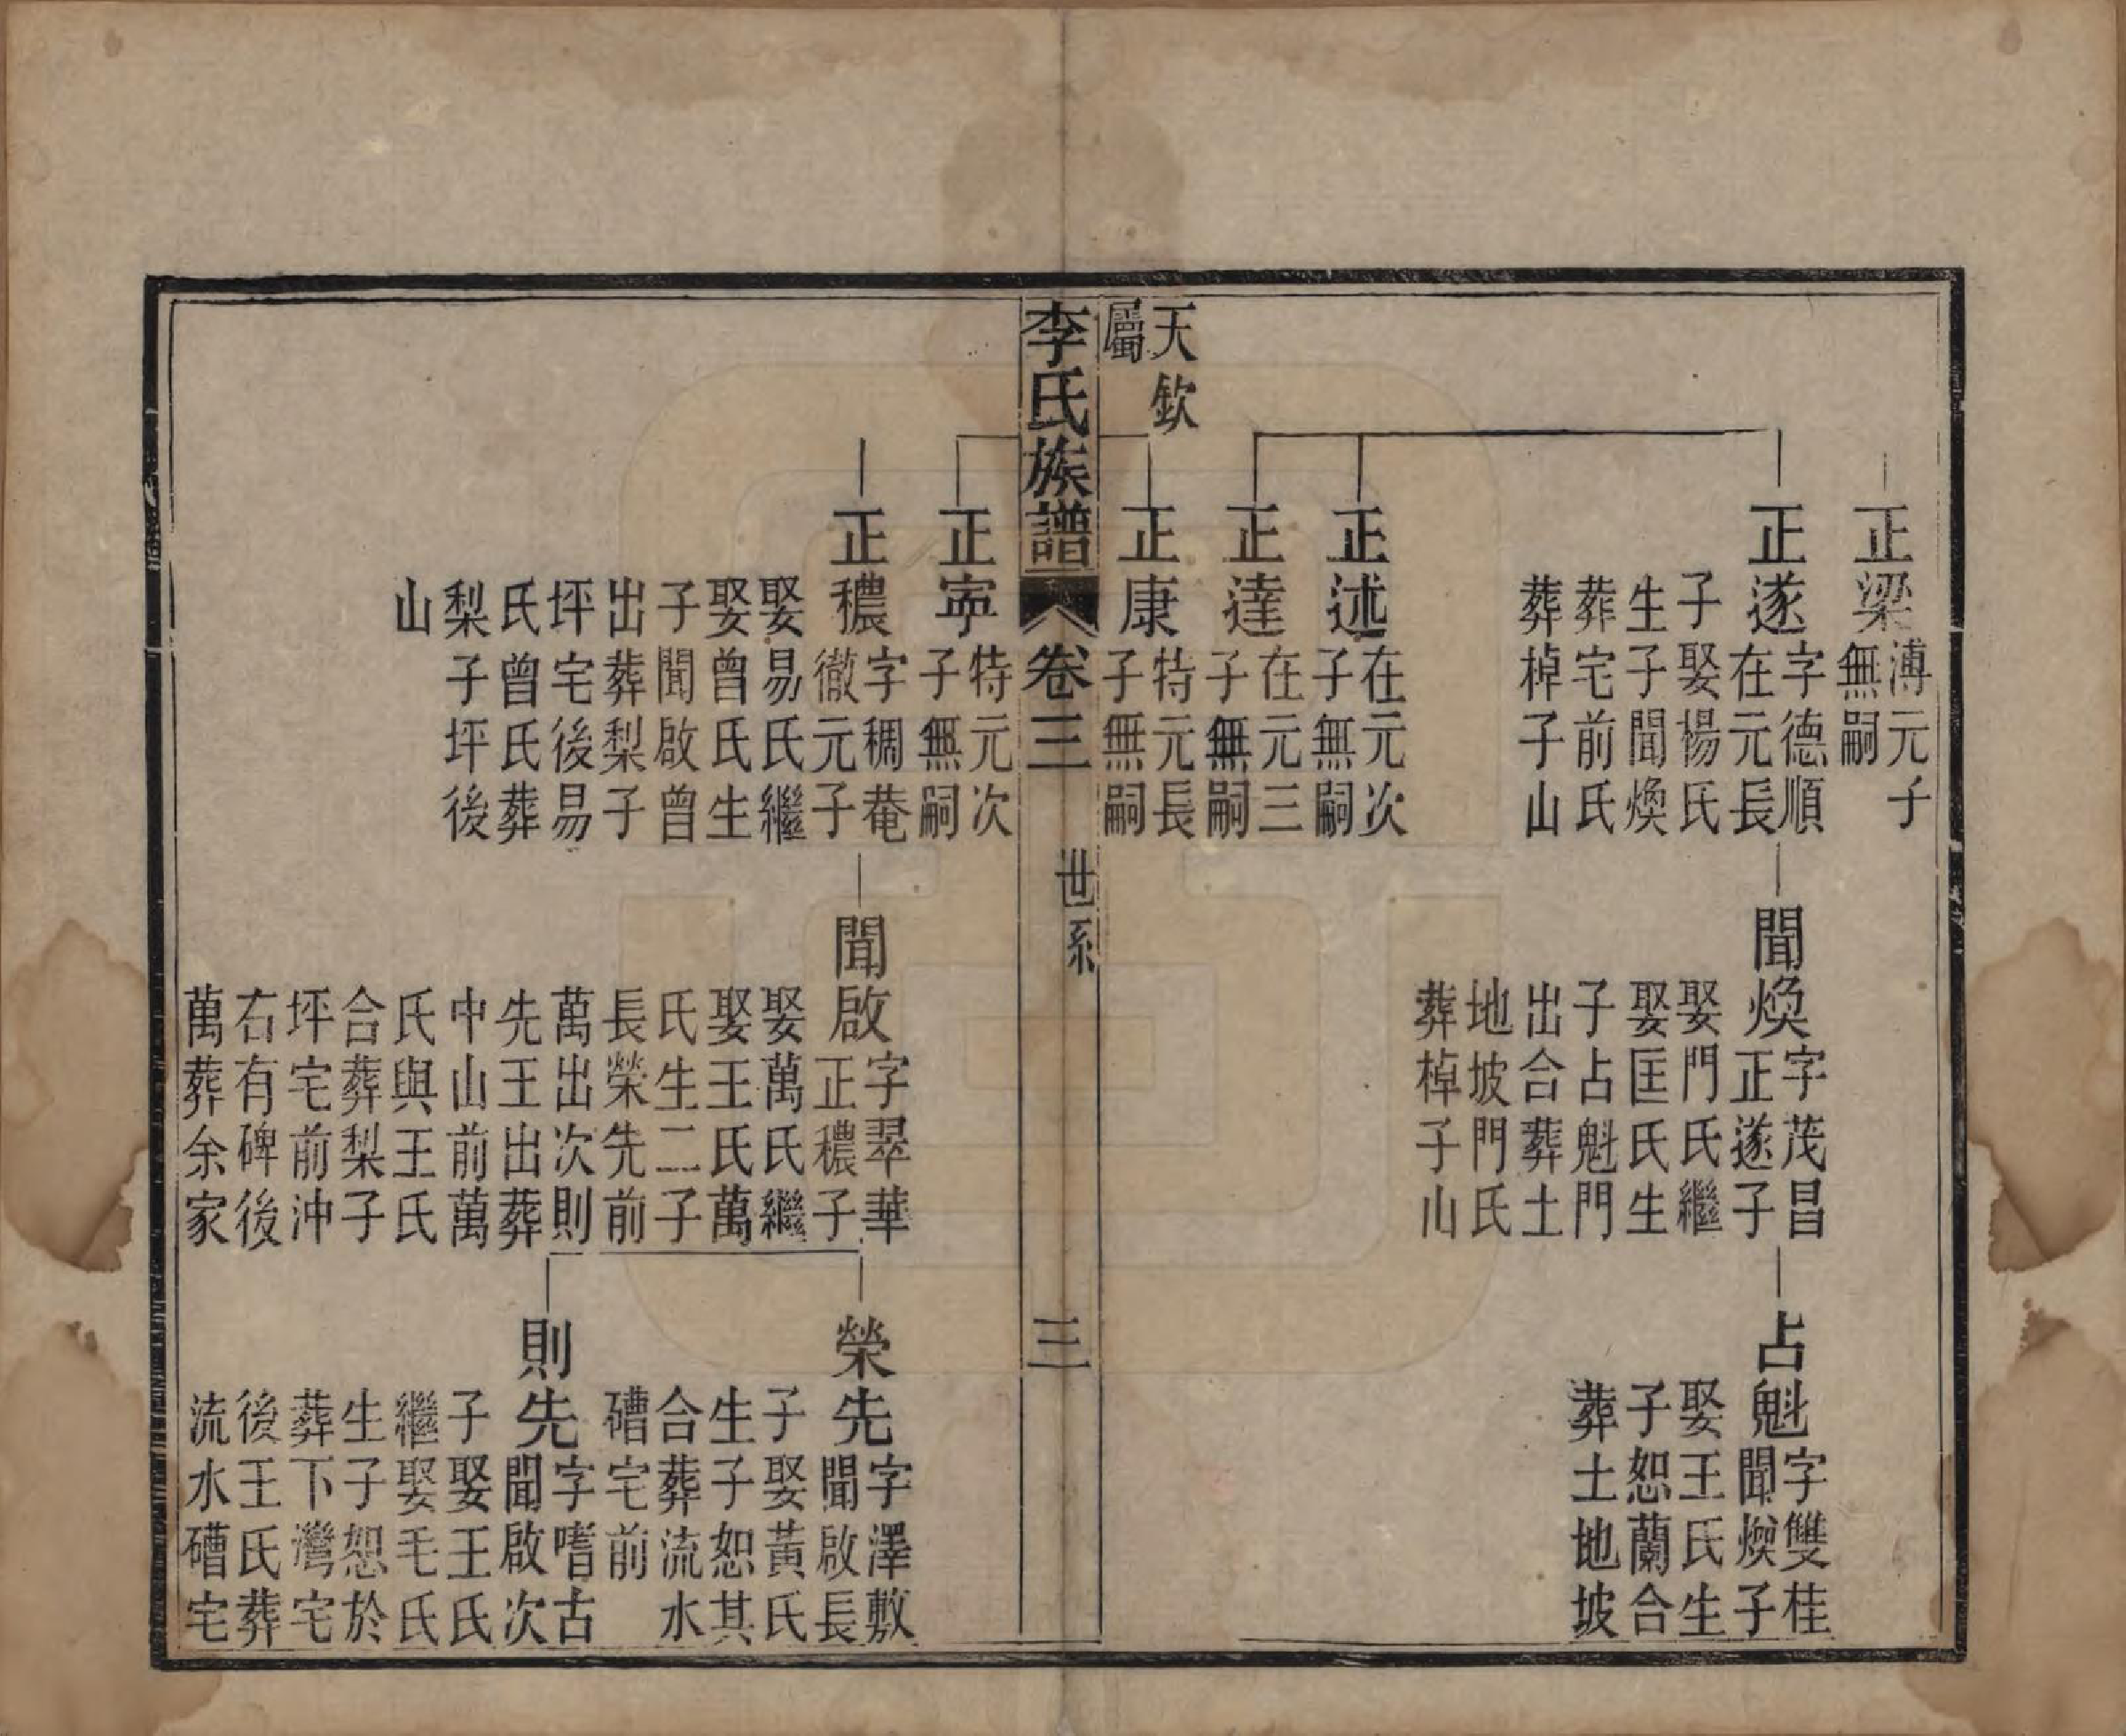 正梁
溥元子
無嗣
正遂
字德順
在元長
子娶楊氏
生子聞煥
葬宅前氏
葬棹子山
聞煥
字茂昌
正遂子
娶門氏繼
娶匡氏生
子占魁門
出合葬土
地坡門氏
葬棹子山
占魁
字雙桂
聞煥子
娶王氏生
子恕蘭合
葬土地坡
正述
在元次
子無嗣
正達
在元三
子無嗣
天欽
屬
正康
特元長
子無嗣
李氏族譜
卷三
世系
三
正寕
特元次
子無嗣
正穠
字稠菴
徹元子
娶易氏繼
娶曾氏生
子聞啟曾
出葬梨子
坪宅後易
氏曾氏葬
梨子坪後
山
聞啟
字翠華
正穠子
娶萬氏繼
娶王氏萬
氏生二子
長榮先前
萬出次則
先王出葬
中山前萬
氏與王氏
合葬梨子
坪宅前沖
右有碑後
萬葬余家
榮先
字澤敷
聞啟長
子娶黃氏
生子恕其
合葬流水
磳宅前
則先
字嗜古
聞啟次
子娶王氏
繼娶毛氏
生子恕於
葬下灣宅
後王氏葬
流水磳宅